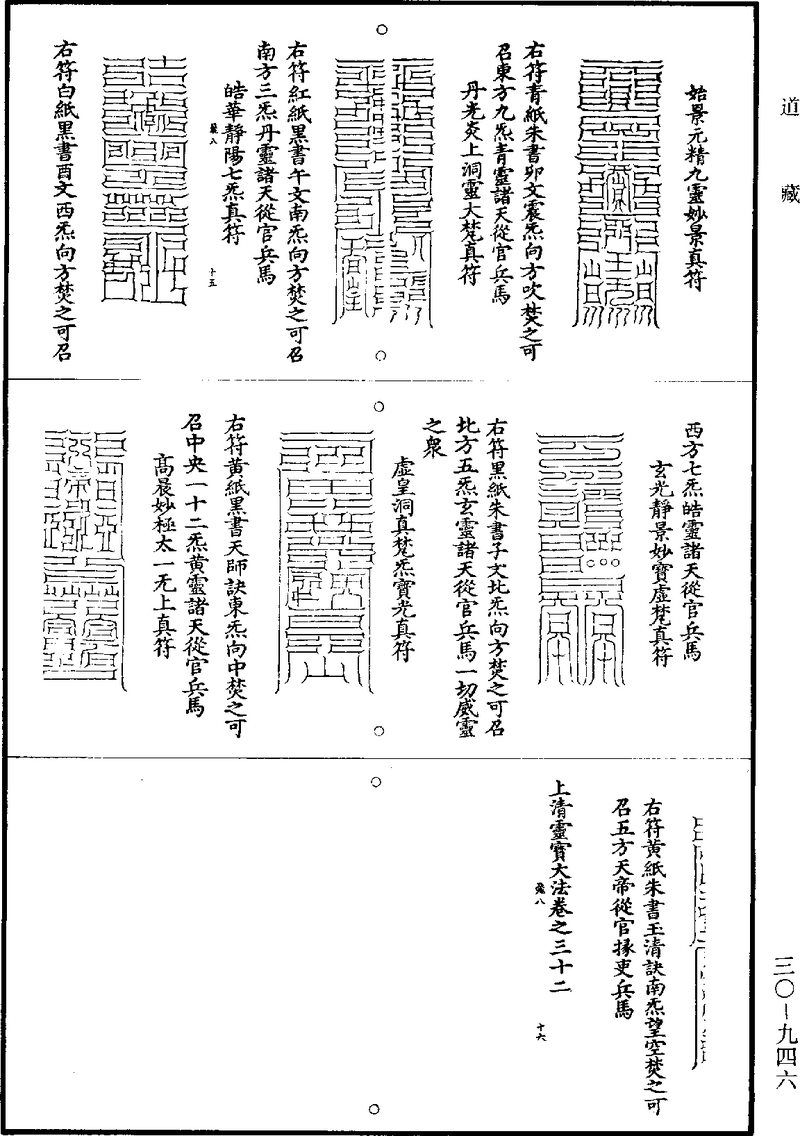 道藏
始景元精九靈妙景真符
右符青紙朱書卯文震炁向方吹焚之可
召東方九炁青靈諸天從官兵馬
丹光炎上洞靈大梵真符
右符紅紙黑書午文南炁向方焚之可召
南方三炁丹靈諸天從官兵馬
皓華靜陽七炁真符
十五
右符白紙黑書酉文西炁向方焚之可召
西方七炁皓靈諸天從官兵馬
玄光靜景妙寶虛梵真符
右符黑紙朱書子文北炁向方焚之可召
北方五炁玄靈諸天從官兵馬一切威靈
之衆
虛皇洞真梵炁寶光真符
右符黃紙黑書天師訣東炁向中焚之可
召中央一十二炁黃靈諸天從官兵馬
高晨妙極太一无上真符
右符黃紙朱書玉清訣南炁望空焚之可
召五方天帝從官掾吏兵馬
上清靈寶大法卷之三十二
十六
三〇–九四六